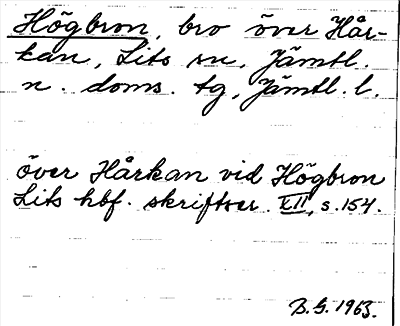 Högbron, bro över Hår-
kan, Lits sn, Jämtl.
n. doms. tg, Jämtl. l.
över Hårkan vid Högbron
Lits hbf. skriftser. XII, s. 154.
B.G. 1963.